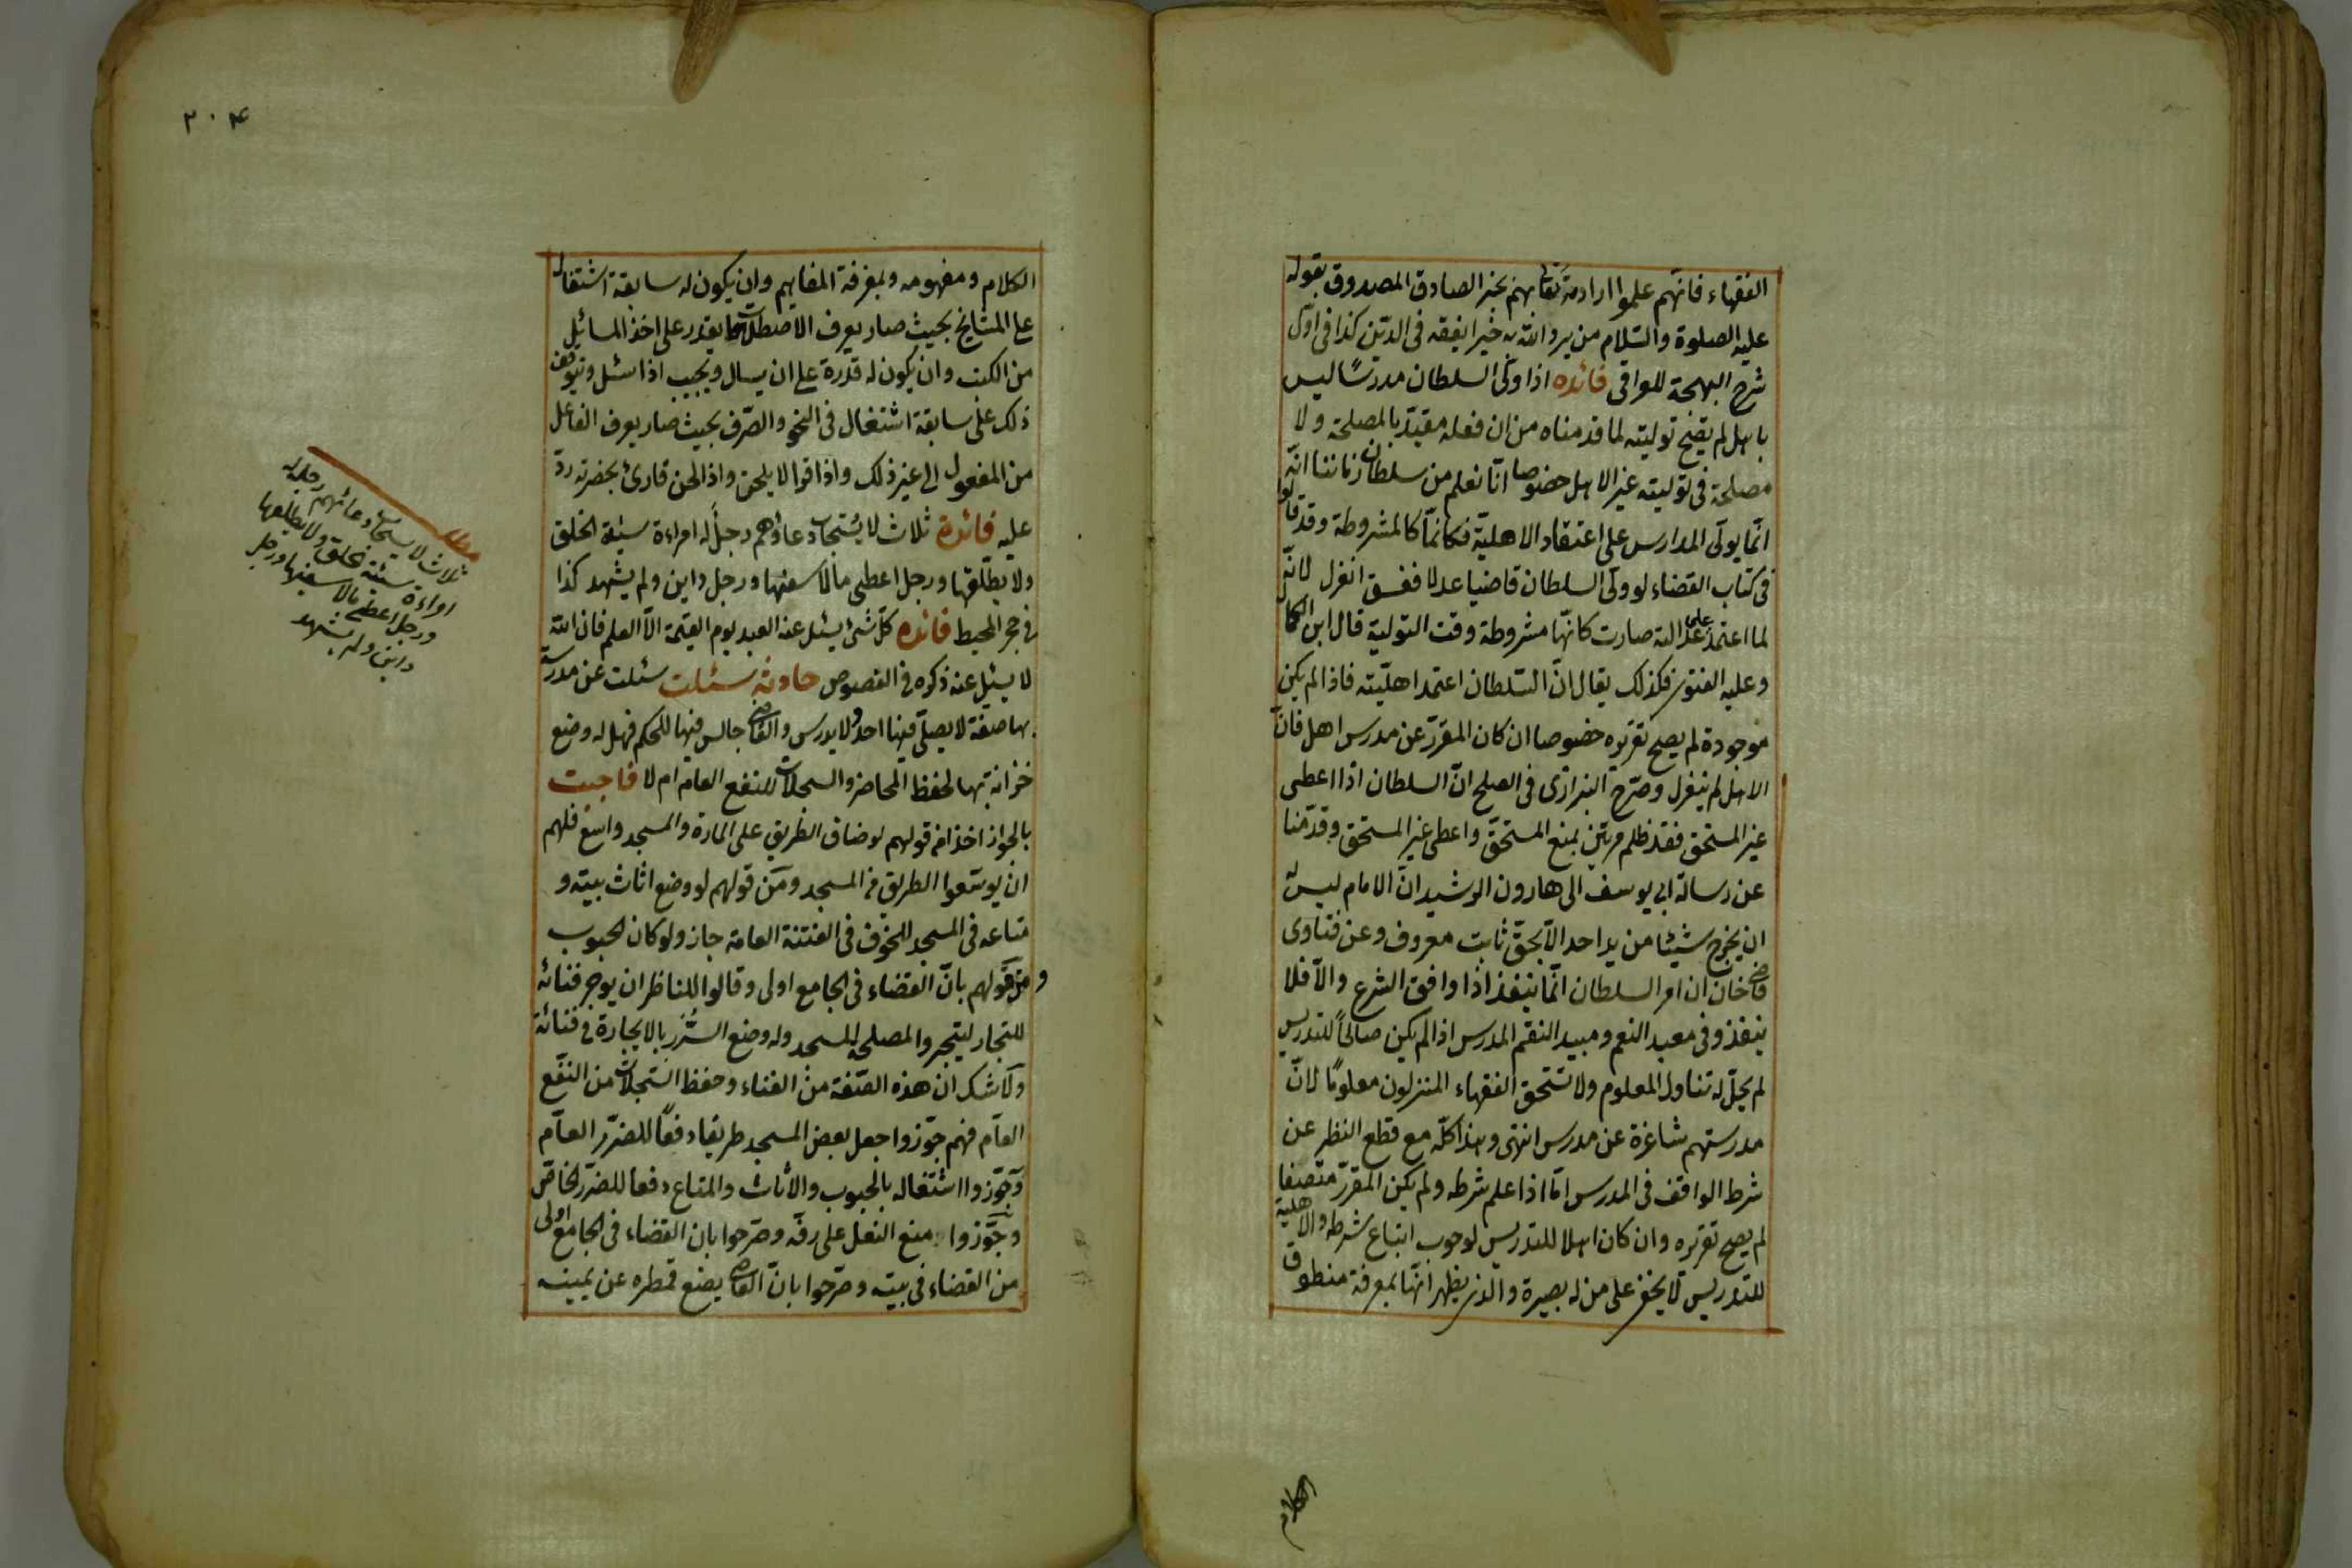 الفقهاء فانهم علموا ارادته تعالى بهم بخبر الصادق المصدوق بقوله
عليه الصلوة والسّلام من يرد الله به خيرا يفقه فى الدّين كذا فى اوّل
شرح البهجة للعراقى فائده اذا ولّى السلطان مدرّسًا ليس
باهل لم يصح توليته لما قدمناه من ان فعله مقيّد بالمصلحة ولا
مصلحة فى توليته غير الاهل خصوصا انّا نعلم من سلطان زماننا انّه
انّما يولّى المدارس على اعتقاد الاهليّة فكانّها كالمشروطة وقد قالوا
فى كتاب القضاء لو ولّى السلطان قاضيا عدلا ففسق انعزل لانّه
لما اعتمد على عدالته صارت كانّها مشروطة وقت التولية قال ابن الكمال
وعليه الفتوى فكذلك يقال انّ السّلطان اعتمد اهليّته فاذا لم يكن
موجودة لم يصح تقريره خصوصا ان كان المقرّر عن مدرس اهل فانّ
الاهل لم ينعزل وصرّح البزازى فى الصلح انّ السلطان اذا اعطى
غير المستحق فقد ظلم مرتين بمنع المستحقّ واعطى غير المستحق وقدّمنا
عن رسالة ابى يوسف الى هارون الرشيد انّ الامام ليس له
ان يخرج شيئا من يد احد الّا بحقّ ثابت معروف وعن فتاوى
قاضيخان ان امر السلطان انّما ينفذ اذا وافق الشرع والّا فلا
ينفذ وفى معيد النعم ومبيد النقم المدرس اذا لم يكن صالحاً للتدريس
لم يحلّ له تناول المعلوم ولا تستحق الفقهاء المنزلون معلومًا لانّ
مدرستهم شاغرة عن مدرس انتهى وهذا كلّه مع قطع النظر عن
شرط الواقف فى المدرس امّا اذا علم شرطه ولم يكن المقرّر متّصفا
لم يصح تقريره وان كان اهلا للتدريس لوجوب اتباع شرطه والاهلية
للتدريس لا يخفى على من له بصيرة والذى يظهر انّها بمعرفة منطوق
الكلام
٢٠٤
الكلام ومفهومه وبمعرفة المفاهيم وان يكون له سابقة اشتغال
على المشايخ بحيث صار يعرف الاصطلاحات يقدر على اخذ المسائل
من الكتب وان يكون له قدرة على ان يسال ويجيب اذا سئل وتتوقف
ذلك على سابقة اشتغال فى النحو والصّرف بحيث صار يعرف الفاعل
من المفعول الى غير ذلك واذا قرا لا يلحن واذا لحن قارئ بحضرته ردّ
عليه فائدة ثلاث لا يُستجاب دعاؤهم رجلٌ له امراءة سيئة الخلق
ولا يطلّقها ورجل اعطى مالا سفيها ورجل داين ولم يشهد كذا
فى حجر المحيط فائده كلّ شئ يسئل عنه العبد يوم القيمة الّا العلم فان الله
لا يسئل عنه ذكره فى الفصوص حادثة سئلت سئلت عن مدرسة
بها صفّة لا يصلّى فيها احد ولا يدرس والقاضى جالس فيها للحكم فهل له وضع
خزانة بها لحفظ المحاضر والسجلات للنفع العام ام لا فاجبت
بالجواز اخذا من قولهم لو ضاق الطريق على المارة والمسجد واسع فلهم
ان يوسّعوا الطريق من المسجد ومن قولهم لو وضع اثاث بيته و
متاعه فى المسجد للخوف فى الفتنة العامة جاز ولو كان الحبوب
ومن قولهم بانّ القضاء فى الجامع اولى وقالوا للناظر ان يوجر فنائه
للتجار ليتجروا لمصلحة المسجد وله وضع السُّرر بالايجارة فى فنائه
ولا شك ان هذه الصّفة من الفناء وحفظ السّجلات من النفع
العامّ فهم جوّزوا جعل بعض المسجد طريقا دفعًا للضرّر العامّ
وجوّزوا اشتغاله بالحبوب والأثاث والمتاع دفعا للضرّر الخاصّ
وجوّزوا وضع النعل على رفّه وصرّحوا بان القضاء فى الجامع اولى
من القضاء فى بيته وصرّحوا بانّ القاضى يضع قمطره عن يمينه
مطلب
ثلاث لا يستجاب دعائهم رجل له
امراءة سيئة الخلق ولا يطلقها
ورجل اعطى مالا سفيها ورجل
داين ولم يشهد